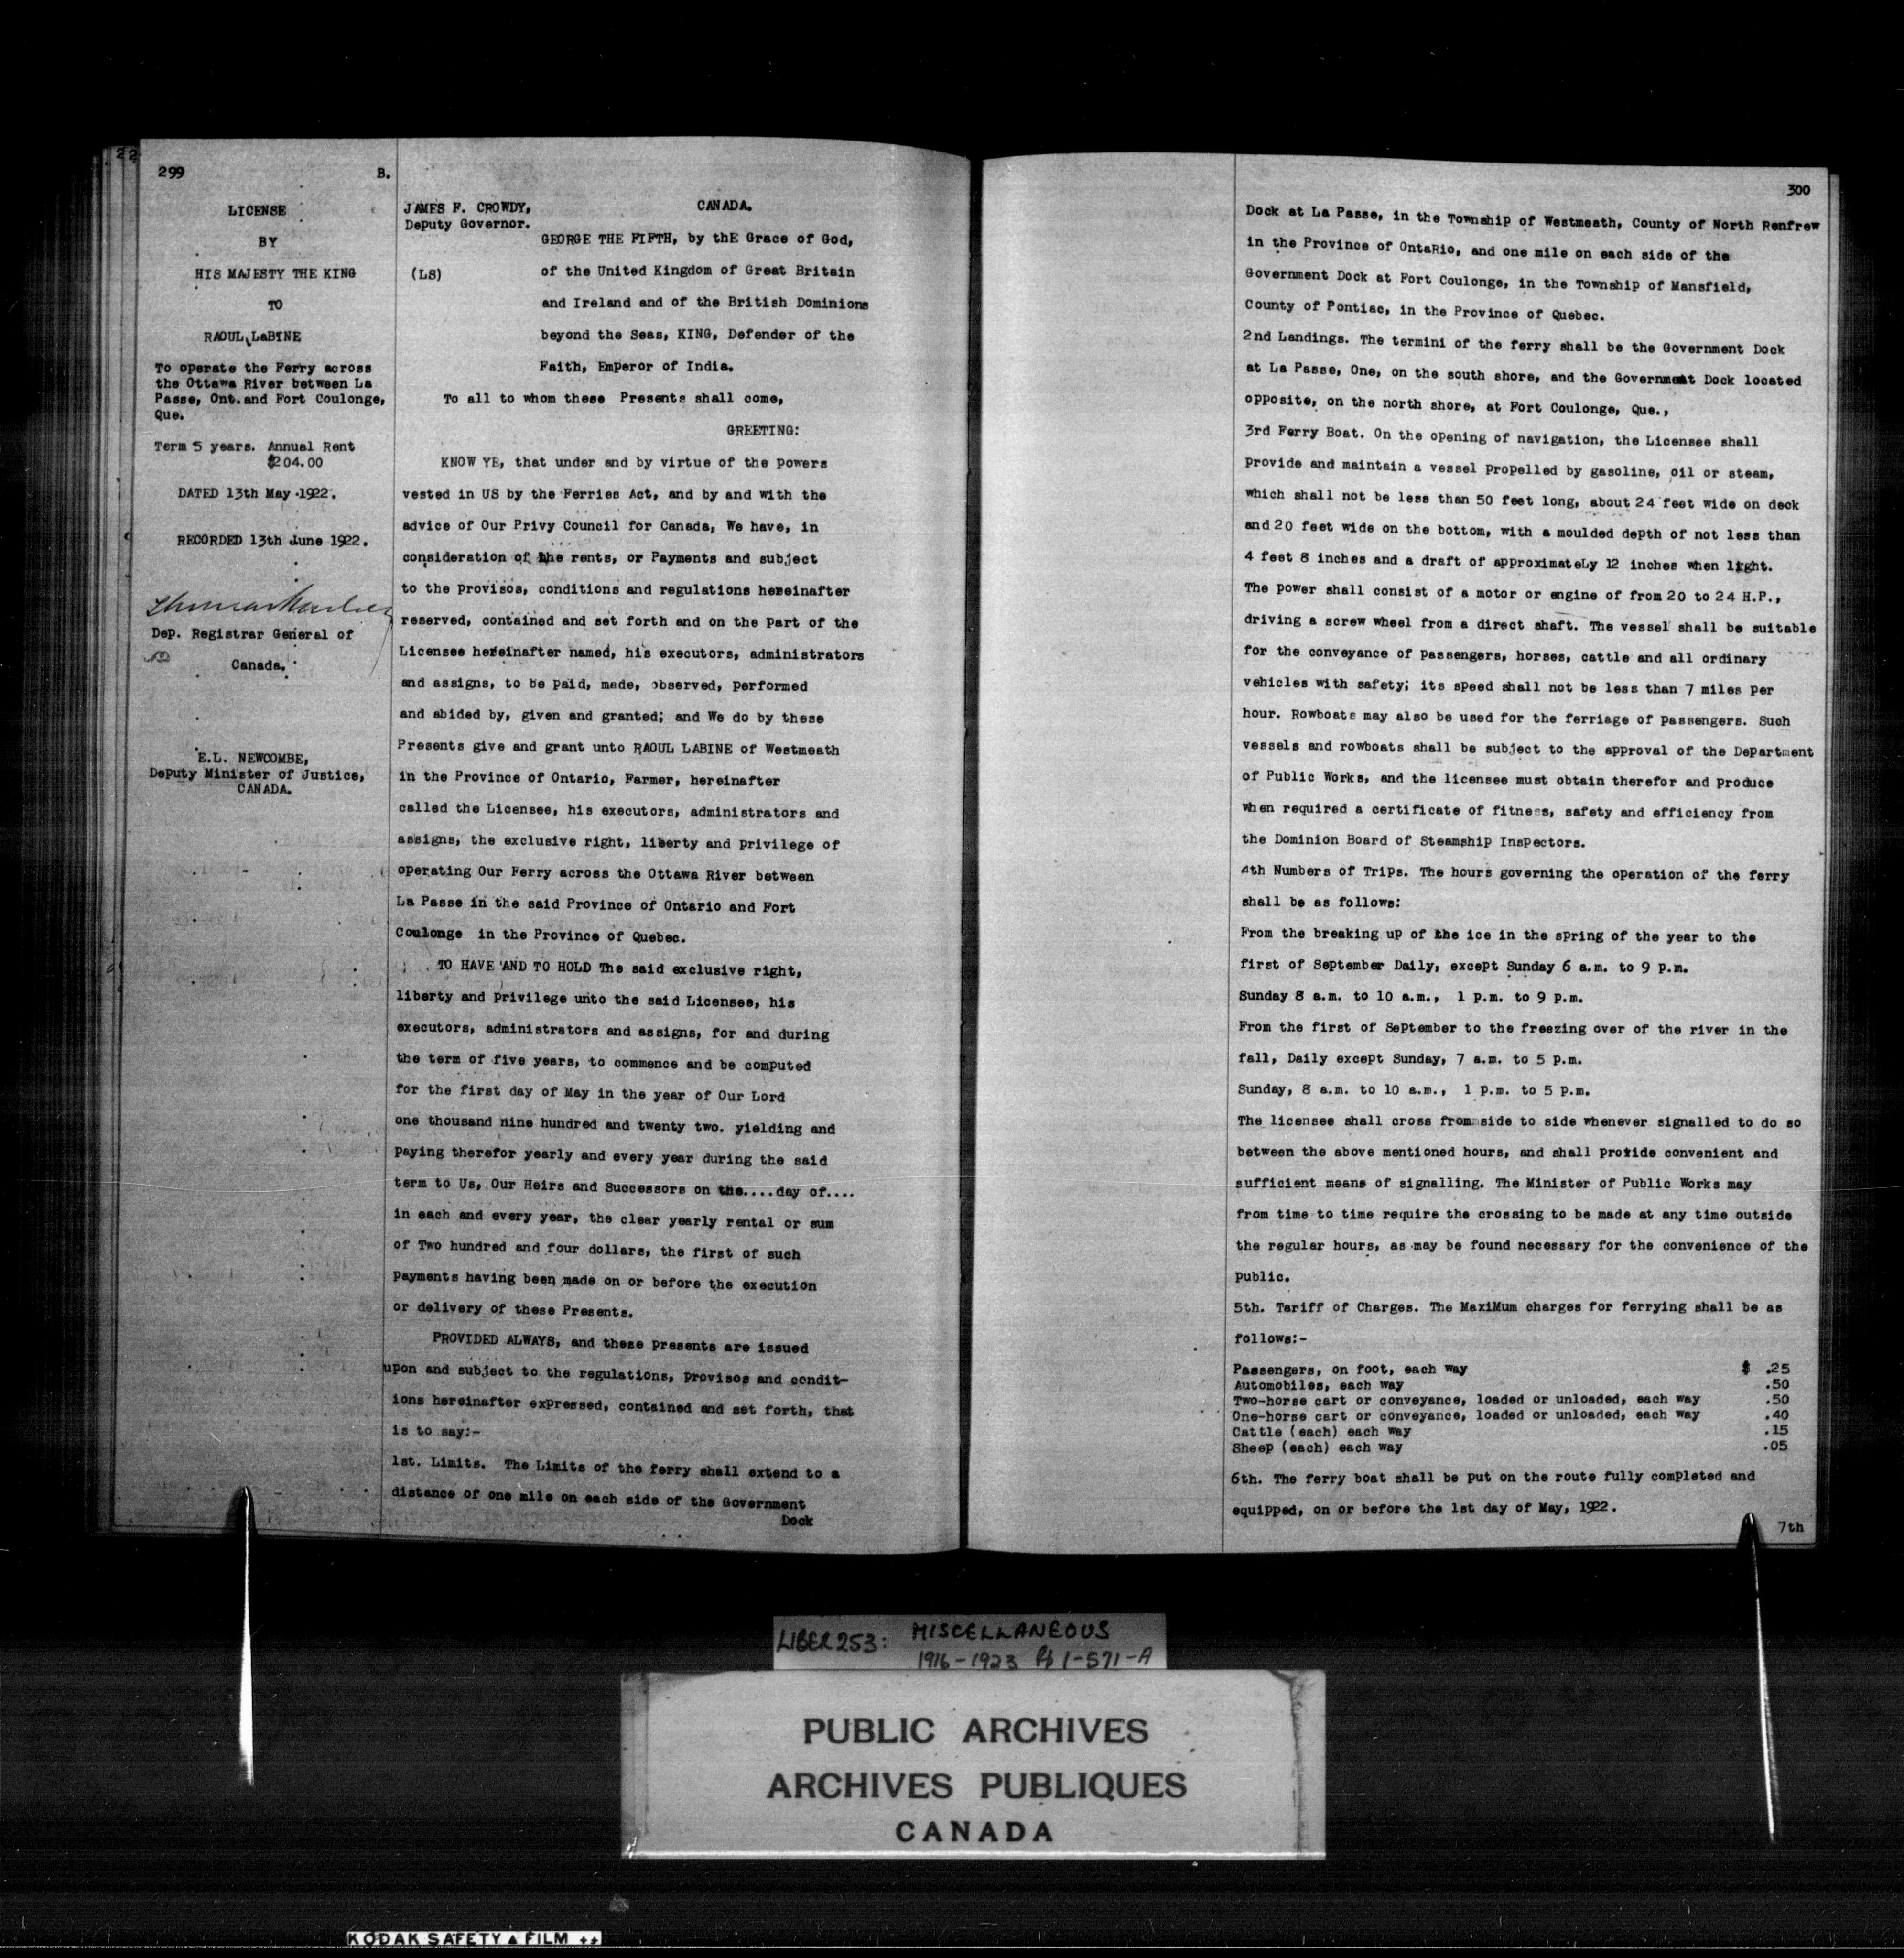 22
299 B.
LICENSE
BY
HIS MAJESTY THE KING
TO
RAOUL LaBINE
To operate the Ferry across
the Ottawa River between La
Passe, Ont. and Fort Coulonge,
Que.
Term 5 years. Annual Rent
$204.00
DATED 13th May 1922.
RECORDED 13th June 1922.
Dep. Registrar General of
Canada.
E.L. NEWCOMBE,
Deputy Minister of Justice,
CANADA.
JAMES F. CROWDY,
Deputy Governor.
CANADA.
(LS)
GEORGE THE FIFTH, by thE Grace of God,
of the United Kingdom of Great Britain
and Ireland and of the British Dominions
beyond the Seas, KING, Defender of the
Faith, Emperor of India.
To all to whom these Presents shall come,
GREETING:
KNOW YE, that under and by virtue of the powers
vested in US by the Ferries Act, and by and with the
advice of Our Privy Council for Canada, We have, in
consideration of the rents, or Payments and subject
to the provisos, conditions and regulations hereinafter
reserved, contained and set forth and on the part of the
Licensee hereinafter named, his executors, administrators
and assigns, to be paid, made, observed, performed
and abided by, given and granted; and We do by these
Presents give and grant unto RAOUL LABINE of Westmeath
in the Province of Ontario, Farmer, hereinafter
called the Licensee, his executors, administrators and
assigns, the exclusive right, liberty and privilege of
operating Our Ferry across the Ottawa River between
La Passe in the said Province of Ontario and Fort
Coulonge in the Province of Quebec.
TO HAVE AND TO HOLD The said exclusive right,
liberty and privilege unto the said Licensee, his
executors, administrators and assigns, for and during
the term of five years, to commence and be computed
for the first day of May in the year of Our Lord
one thousand nine hundred and twenty two. yielding and
paying therefor yearly and every year during the said
term to Us, Our Heirs and Successors on the....day of....
in each and every year, the clear yearly rental or sum
of Two hundred and four dollars, the first of such
payments having been made on or before the execution
or delivery of these Presents.
PROVIDED ALWAYS, and these presents are issued
upon and subject to the regulations, provisos and condit-
ions hereinafter expressed, contained and set forth, that
is to say:-
1st. Limits. The Limits of the ferry shall extend to a
distance of one mile on each side of the Government
Dock
300
Dock at La Passe, in the Township of Westmeath, County of North Renfrew
in the Province of OntaRio, and one mile on each side of the
Government Dock at Fort Coulonge, in the Township of Mansfield,
County of Pontiac, in the Province of Quebec.
2nd Landings. The termini of the ferry shall be the Government Dock
at La Passe, One, on the south shore, and the Government Dock located
opposite, on the north shore, at Fort Coulonge, Que.,
3rd Ferry Boat. On the opening of navigation, the Licensee shall
provide and maintain a vessel propelled by gasoline, oil or steam,
which shall not be less than 50 feet long, about 24 feet wide on deck
and 20 feet wide on the bottom, with a moulded depth of not less than
4 feet 8 inches and a draft of approximateLy 12 inches when light.
The power shall consist of a motor or engine of from 20 to 24 H.P.,
driving a screw wheel from a direct shaft. The vessel shall be suitable
for the conveyance of passengers, horses, cattle and all ordinary
vehicles with safety; its speed shall not be less than 7 miles per
hour. Rowboats may also be used for the ferriage of passengers. Such
vessels and rowboats shall be subject to the approval of the Department
of Public Works, and the licensee must obtain therefor and produce
when required a certificate of fitness, safety and efficiency from
the Dominion Board of Steamship Inspectors.
4th Numbers of Trips. The hours governing the operation of the ferry
shall be as follows:
From the breaking up of the ice in the spring of the year to the
first of September Daily, except Sunday 6 a.m. to 9 p.m.
Sunday 8 a.m. to 10 a.m., 1 p.m. to 9 p.m.
From the first of September to the freezing over of the river in the
fall, Daily except Sunday, 7 a.m. to 5 p.m.
Sunday, 8 a.m. to 10 a.m., 1 p.m. to 5 p.m.
The licensee shall cross from side to side whenever signalled to do so
between the above mentioned hours, and shall provide convenient and
sufficient means of signalling. The Minister of Public Works may
from time to time require the crossing to be made at any time outside
the regular hours, as may be found necessary for the convenience of the
public.
5th. Tariff of Charges. The MaxiMum charges for ferrying shall be as
follows:-
Passengers, on foot, each way $ .25
Automobiles, each way .50
Two-horse cart or conveyance, loaded or unloaded, each way .50
One-horse cart or conveyance, loaded or unloaded, each way .40
Cattle (each) each way .15
Sheep (each) each way .05
6th. The ferry boat shall be put on the route fully completed and
equipped, on or before the 1st day of May, 1922.
7th
LIBER 253: MISCELLANEOUS
1916-1923 Pp 1-571-A
PUBLIC ARCHIVES
ARCHIVES PUBLIQUES
CANADA
KODAK SAFETY FILM